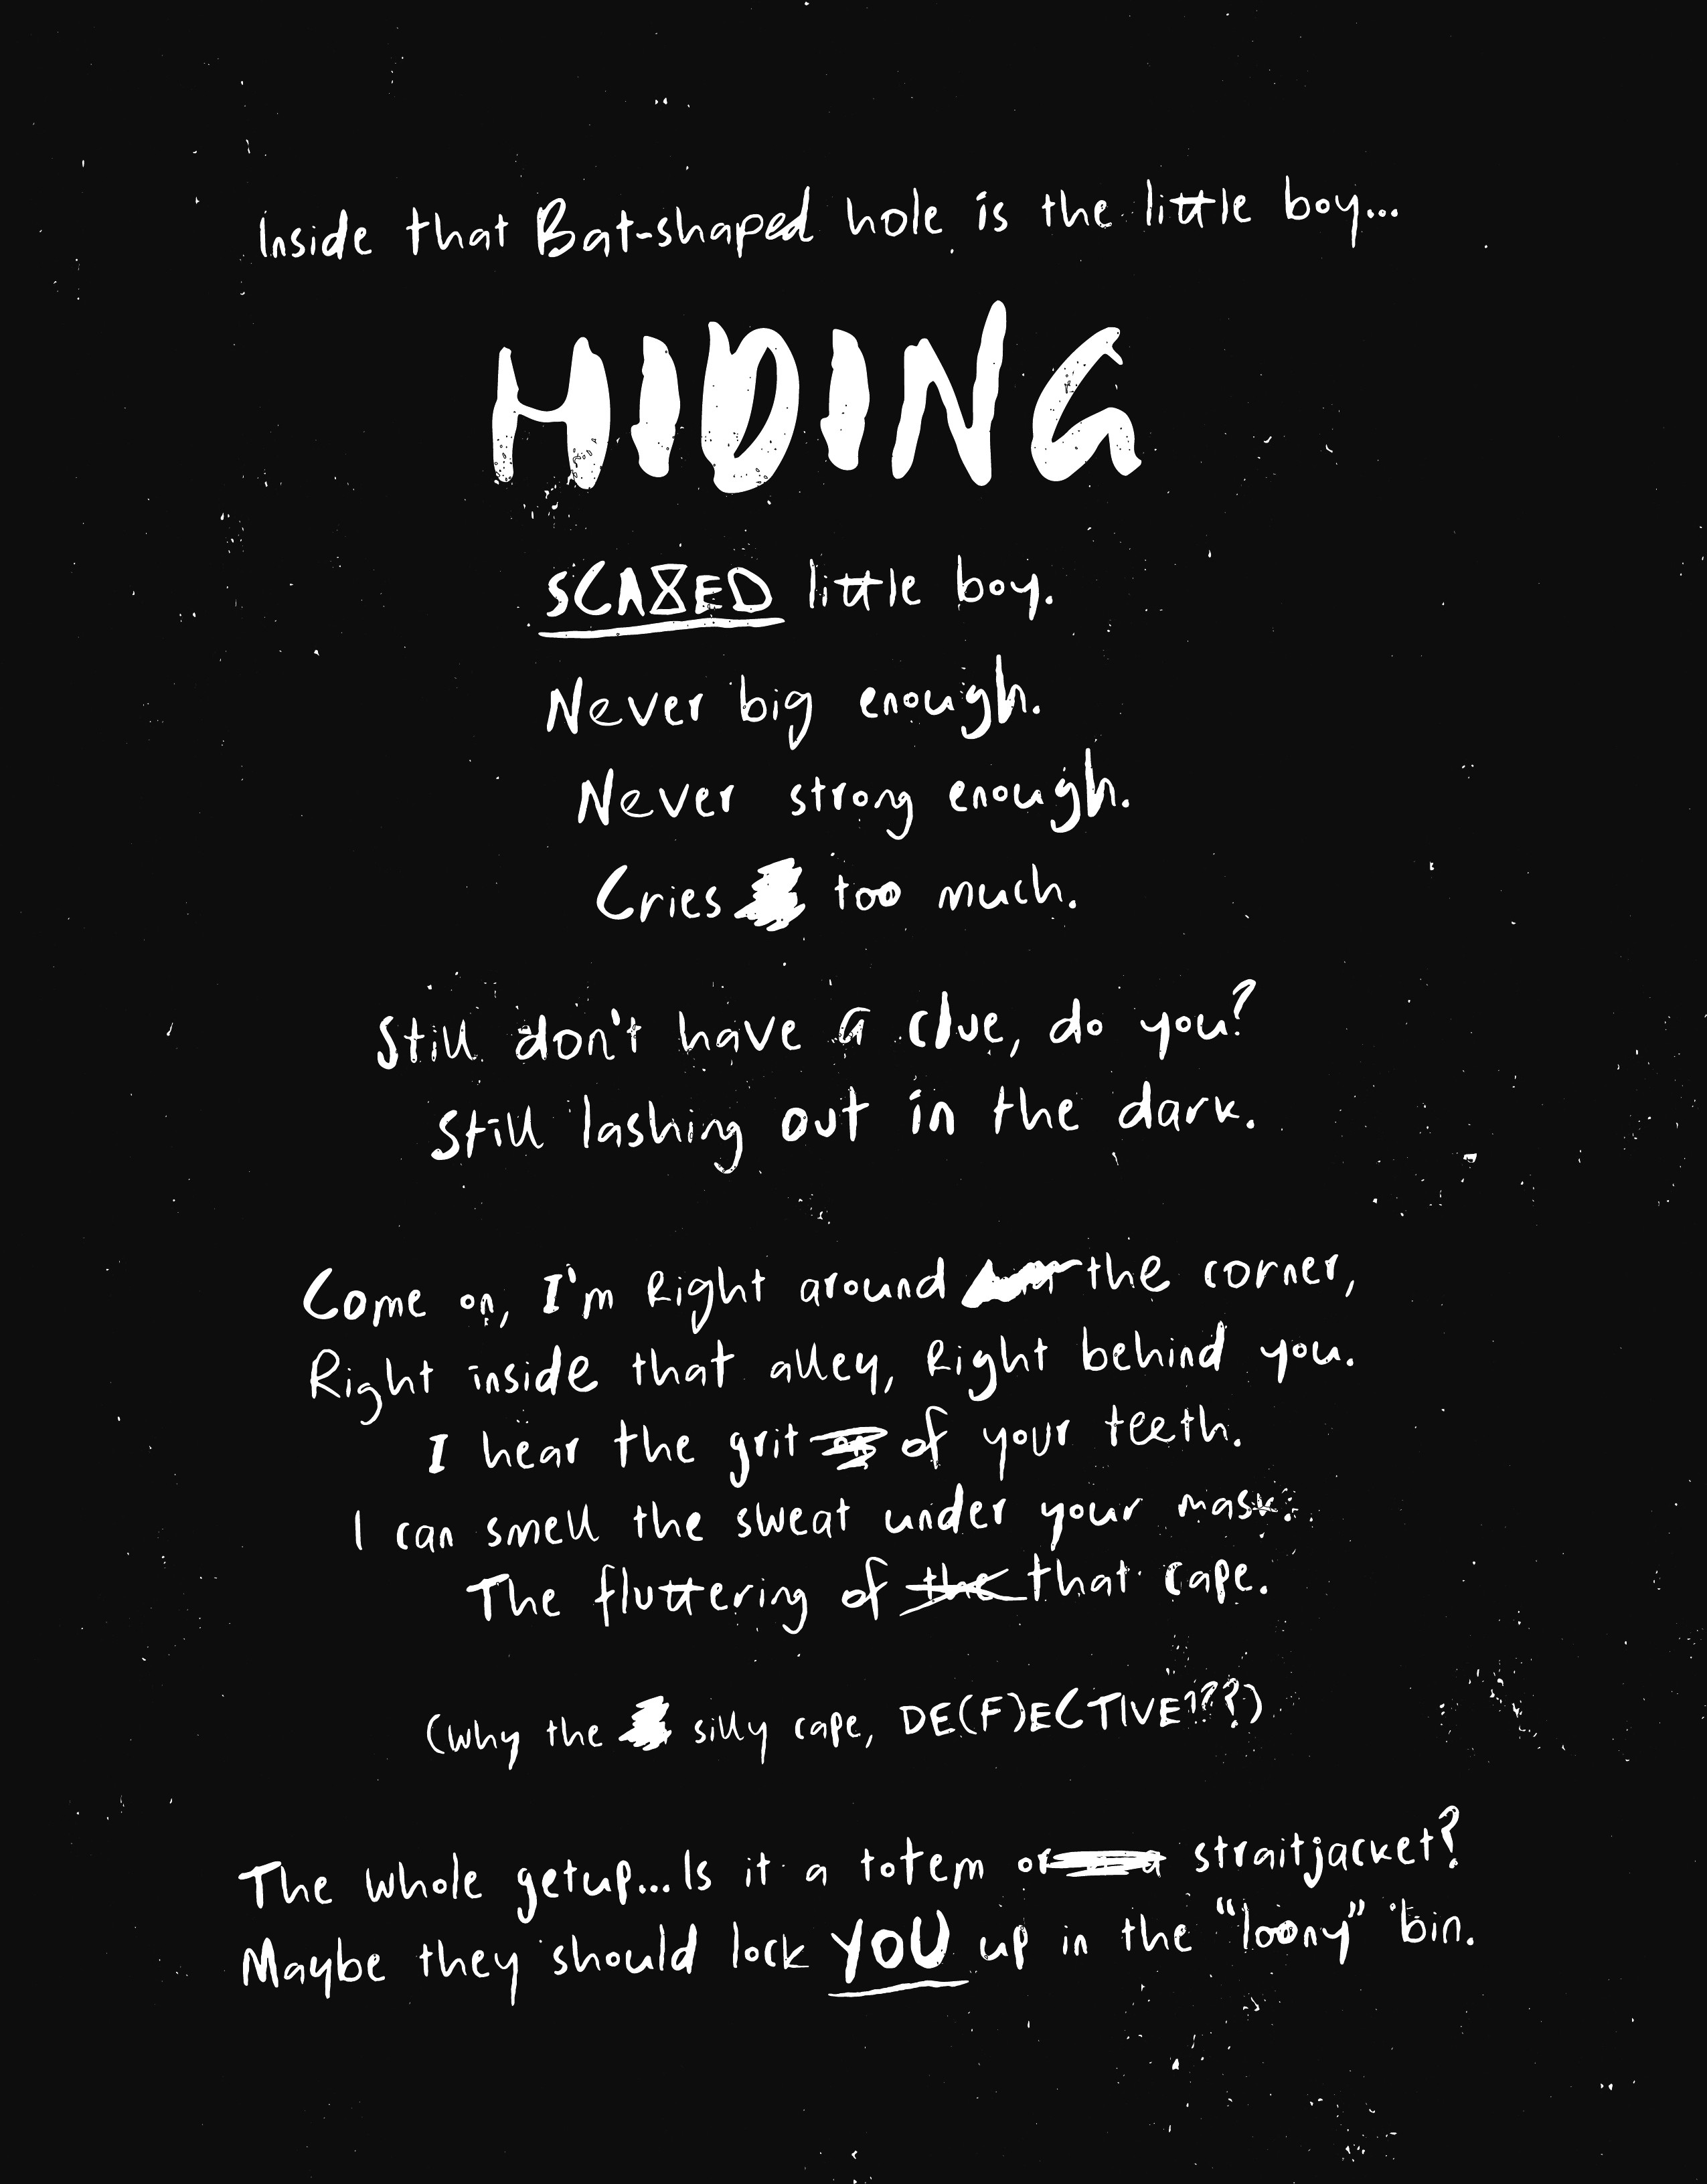 Inside that Bat-shaped hole is the little boy...
HIDING
SCARED little boy.
Never big enough.
Never strong enough.
Cries too much.
Still don't have a clue, do you?
Still lashing out in the dark.
Come on, I'm Right around the corner,
Right inside that alley, Right behind you.
I hear the grit of your teeth.
I can smell the sweat under your mask.
The fluttering of the that cape.
(Why the silly cape, DE(F)ECTIVE???)
The whole getup... Is it a totem or straitjacket?
Maybe they should lock YOU up in the "loony" bin.